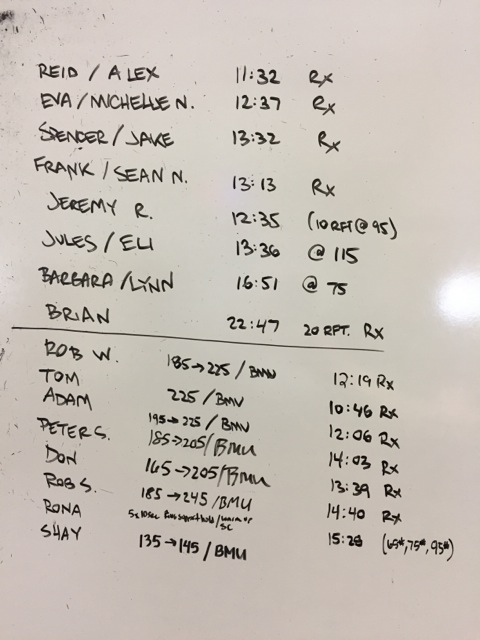 REID / ALEX 11:32 Rx
EVA/MICHELLE N. 12:37 Rx
SPENCER / JAKE 13:32 Rx
FRANK / SEAN N. 13:13 Rx
JEREMY R. 12:35 (10 RFT @ 95)
JULES / ELI 13:36 @ 115
BARBARA /LYNN 16:51 @ 75
BRIAN 22:47 20 RFT. Rx
ROB W. 185→225 / BMU 12:19 Rx
TOM 225 / BMU 10:46 Rx
ADAM 195→225 / BMU 12:06 Rx
PETER G. 185→205/BMU 14:03 Rx
DON 165→205/BMU 13:39 Rx
ROB S. 185→245 /BMU 14:40 Rx
RONA 5x10sec 15:28 (65#, 75#, 95#)
SHAY 135→145 / BMU